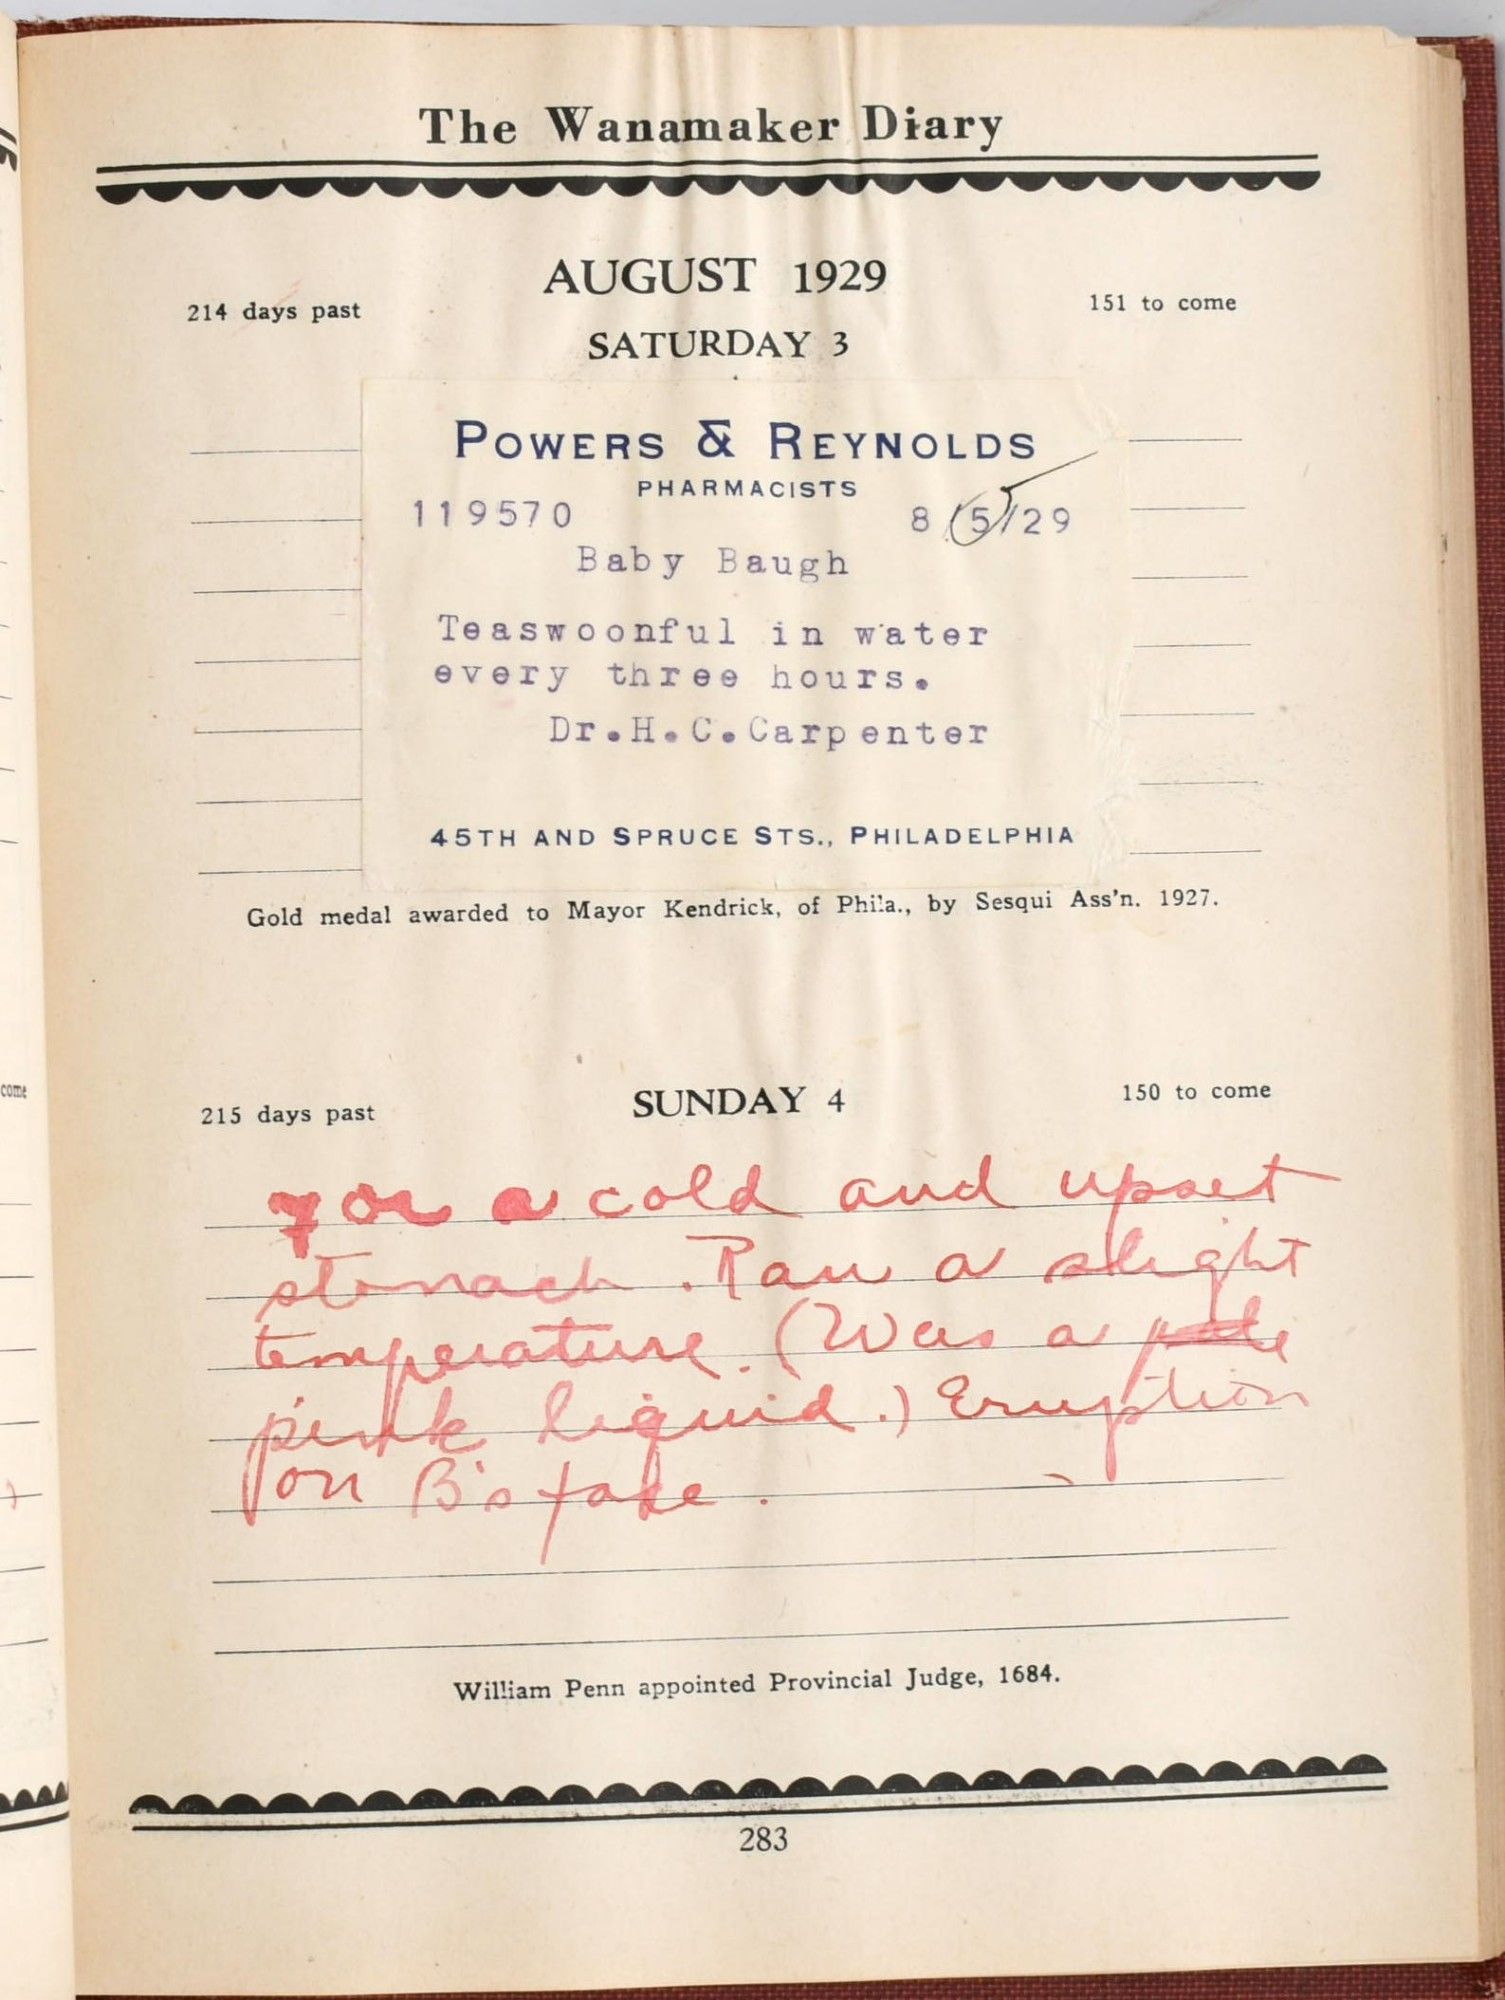 The Wanamaker Diary
AUGUST 1929
214 days past
151 to come
SATURDAY 3
POWERS & REYNOLDS
PHARMACISTS
119570 8/5/29
Baby Baugh
Teaswoonful in water
every three hours.
Dr.H.C.Carpenter
45TH AND SPRUCE STS., PHILADELPHIA
Gold medal awarded to Mayor Kendrick, of Phila., by Sesqui Ass'n. 1927.
215 days past
SUNDAY 4
150 to come
For a cold and upset
stomach. Ran a slight
temperature. (Was a
pink liquid.) Eruption
on B's face.
William Penn appointed Provincial Judge, 1684.
283
come